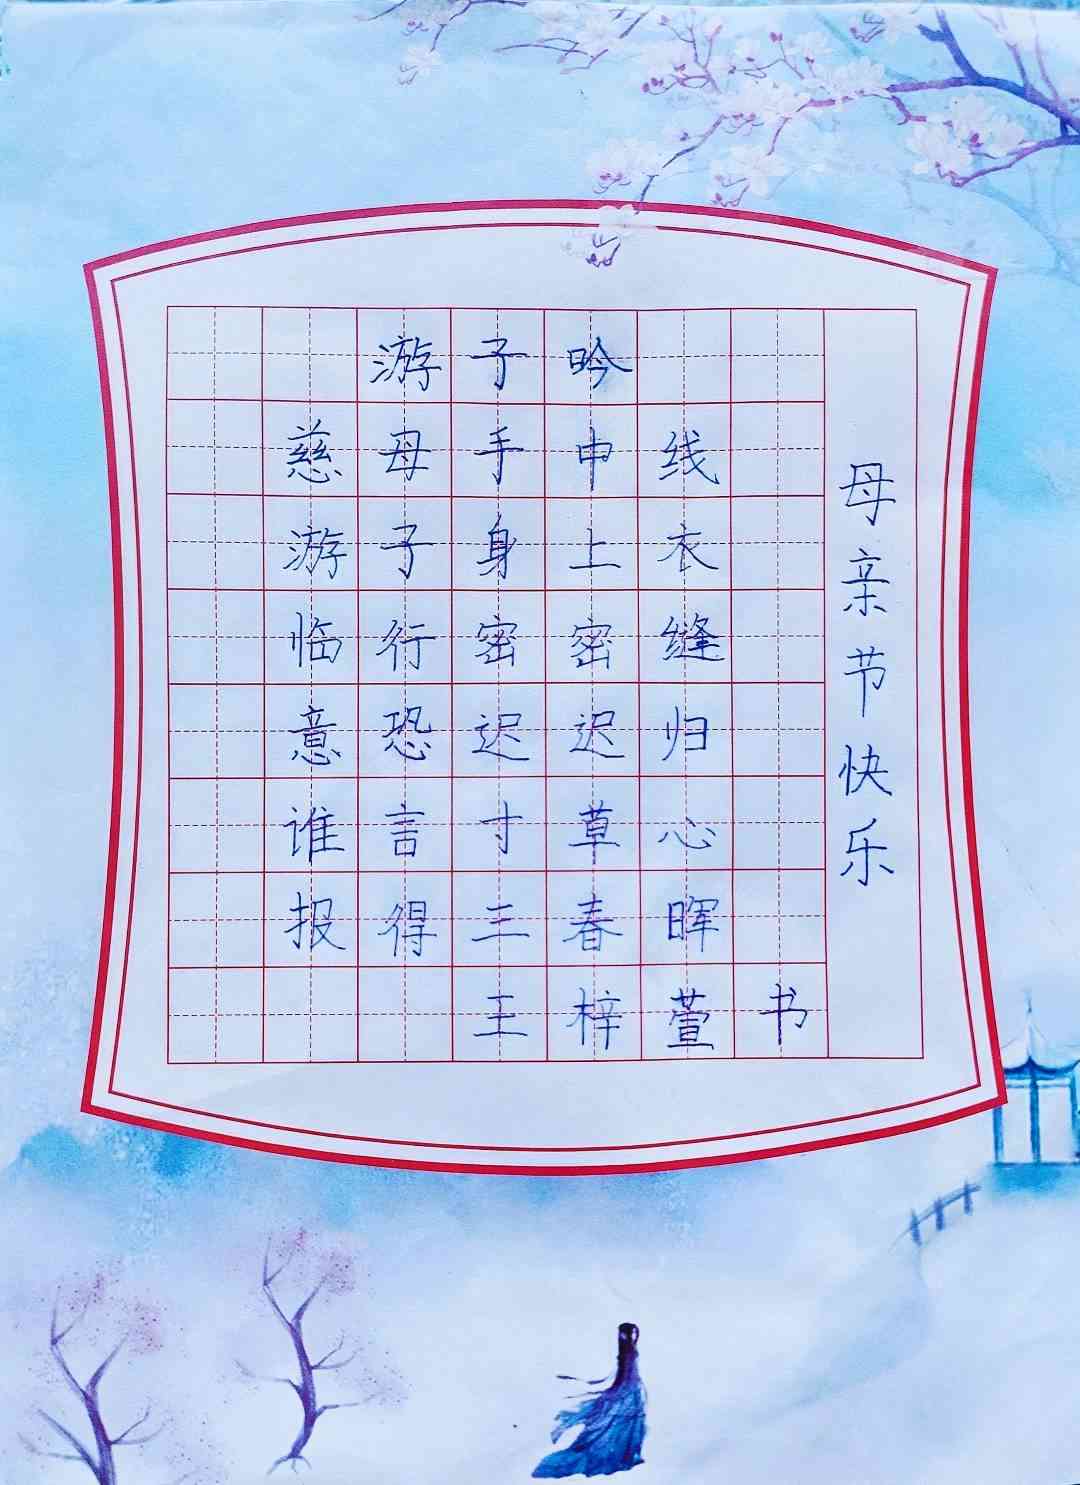 游子吟
慈母手中线
游子身上衣
临行密密缝
意恐迟迟归
谁言寸草心
报得三春晖
王梓萱书
母亲节快乐